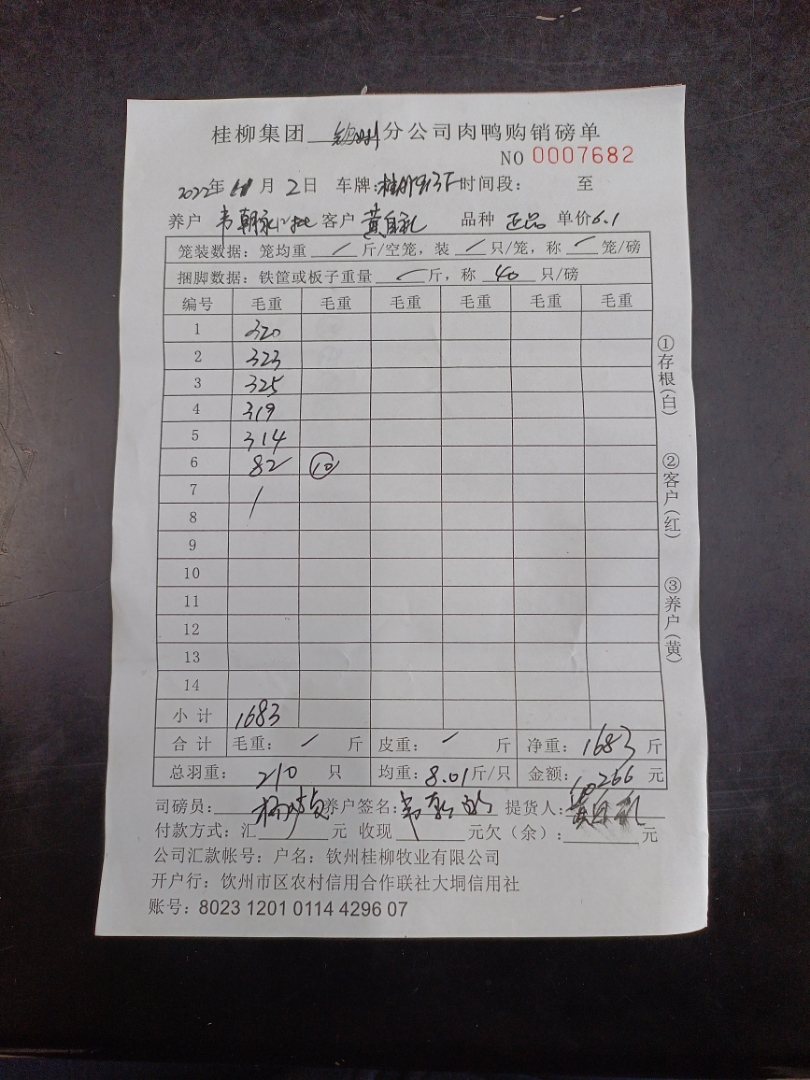 桂柳集团 钦州 分公司肉鸭购销磅单
NO 0007682
2022年 月 2日 车牌: 时间段: 至
养户 韦朝永 客户 黄自礼 品种 正品 单价6.1
笼装数据: 笼均重 / 斤/空笼, 装 / 只/笼, 称 / 笼/磅
捆脚数据: 铁筐或板子重量 / 斤, 称 40 只/磅
编号 毛重 毛重 毛重 毛重 毛重 毛重
1 320
2 323
3 325
4 319
5 314
6 82 ⑩
7 /
8
9
10
11
12
13
14
小计 1683
合计 毛重: / 斤 皮重: / 斤 净重: 1683 斤
总羽重: 210 只 均重: 8.01斤/只 金额: 10266 元
司磅员: 养户签名: 提货人: 黄自礼
付款方式: 汇 元 收现 元欠(余): 元
公司汇款帐号: 户名: 钦州桂柳牧业有限公司
开户行: 钦州市区农村信用合作联社大垌信用社
账号: 8023 1201 0114 4296 07
①存根(白)
②客户(红)
③养户(黄)